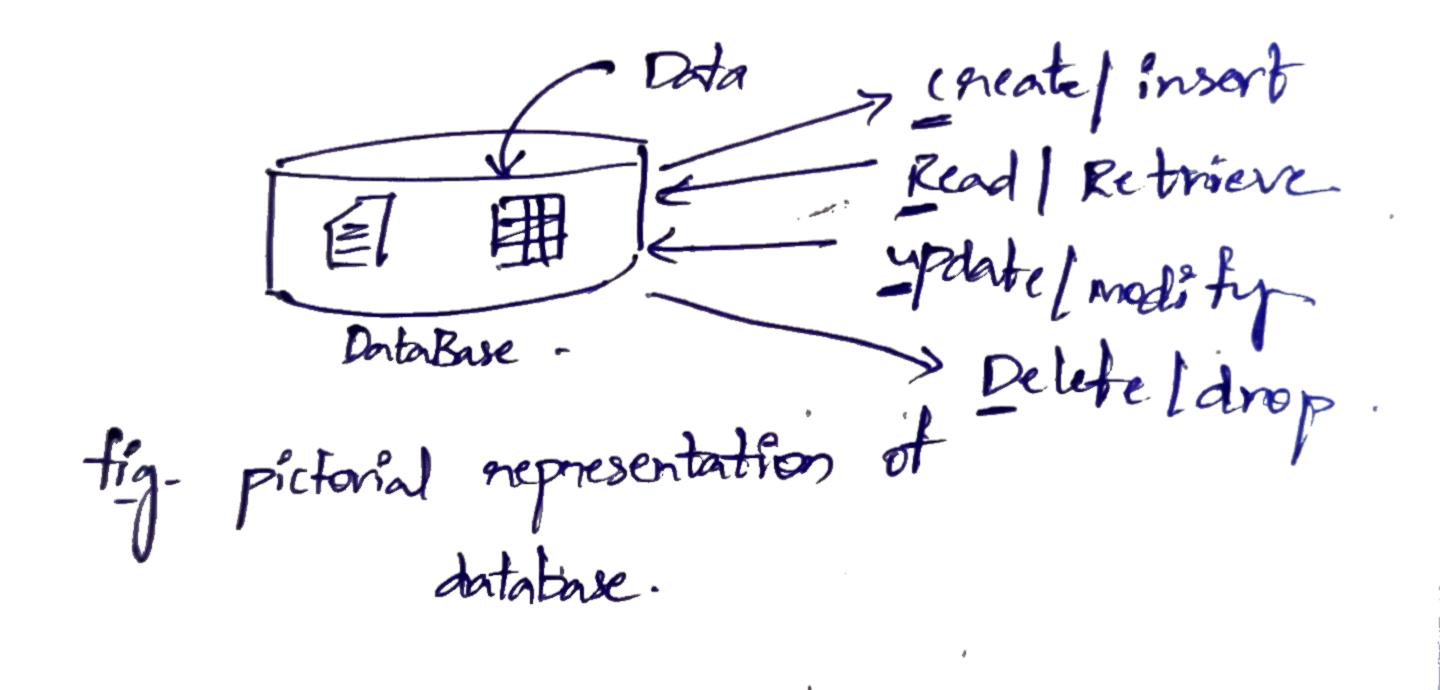 Data
create/ insert
Read / Retrieve
update/modify
Delete/drop
DataBase
fig- pictorial representation of
database.